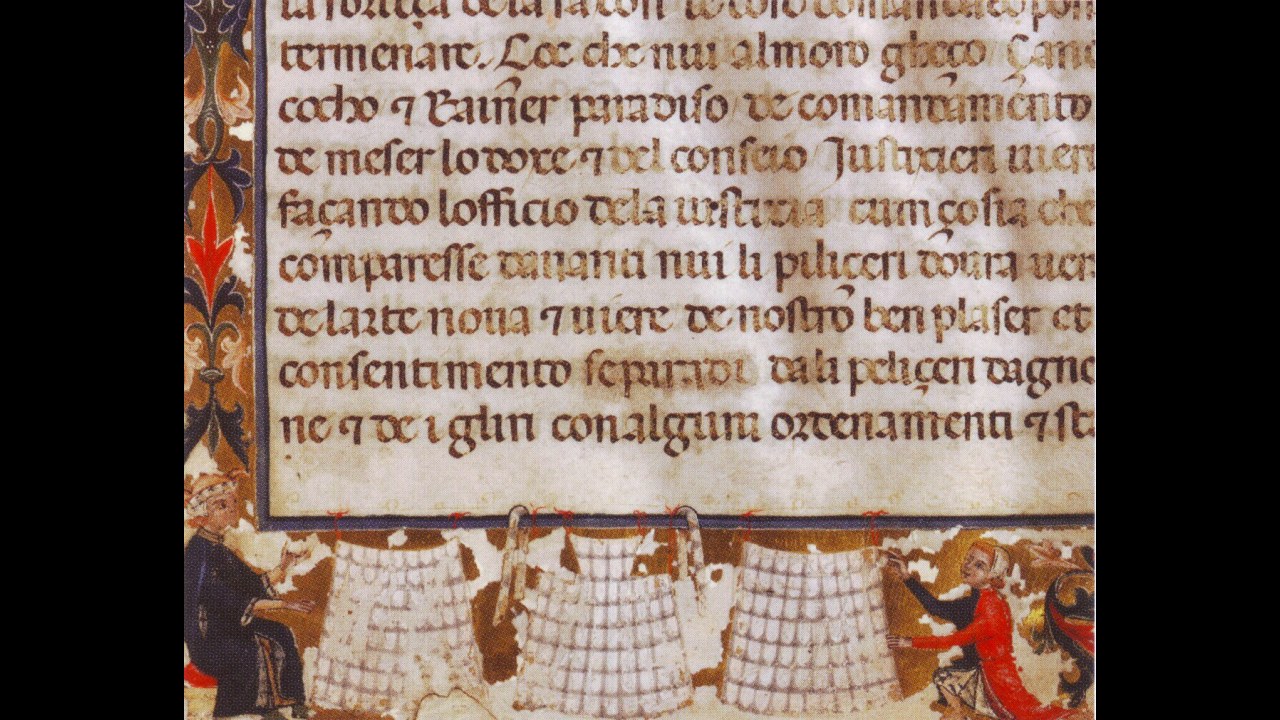 la forteça dela sacosi
termenare. Loe che nui almoro gheço çane
cocho ⁊ Rainer paradiso de comandamento
de meser lo doxe ⁊ del conseio Justixieri uieri
façando lofficio dela iustixia cum ço sia che
comparesse dauanti nui li piliçeri doura uera
delarte noua ⁊ uiere de nostro ben plaser et
consentimento dali peliçeri dagne
ne ⁊ de i gliri con alguni ordenamenti ⁊ sta